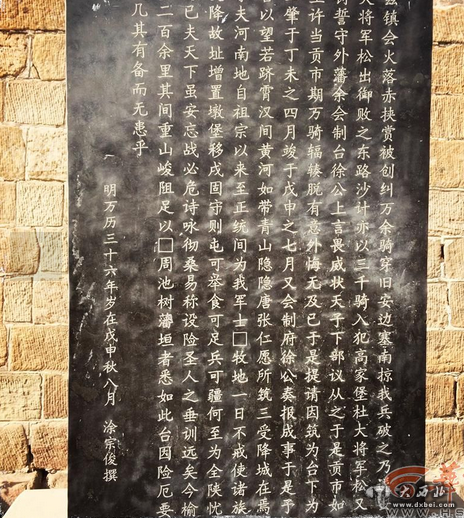 兹镇会火落赤挟赏被创纠万余骑穿旧安边塞南掠我兵破之乃
大将军松出御败之东路沙计亦以三千骑入犯高家堡杜大将军松又
何誓守外藩余会制台徐公上言畏威状天子下部议从之于是贡市如
许当贡市期万骑辐辏脱有意外悔无及已于是提请因筑为台下为
肇于丁未之四月竣于戊申之七月又会制府徐公奏报成事于是于
以望若跻霄汉间黄河如带青山隐隐唐张仁愿所筑三受降城在焉
夫河南地自祖宗以来至正统间为我军士□牧地一日不戒使诸族
降故址增置墩堡移戍固守则屯可举食可足兵可疆何至为全陕忧
已夫天下虽安忘战必危诗咏彻桑易称设险圣人之垂训远矣今榆
二百余里其间重山峻阻足以□周池树藩垣者悉如此台因险厄要
几其有备而无患乎
明万历三十六年岁在戊申秋八月 涂宗俊撰
中华 大西北
www.dxbei.com